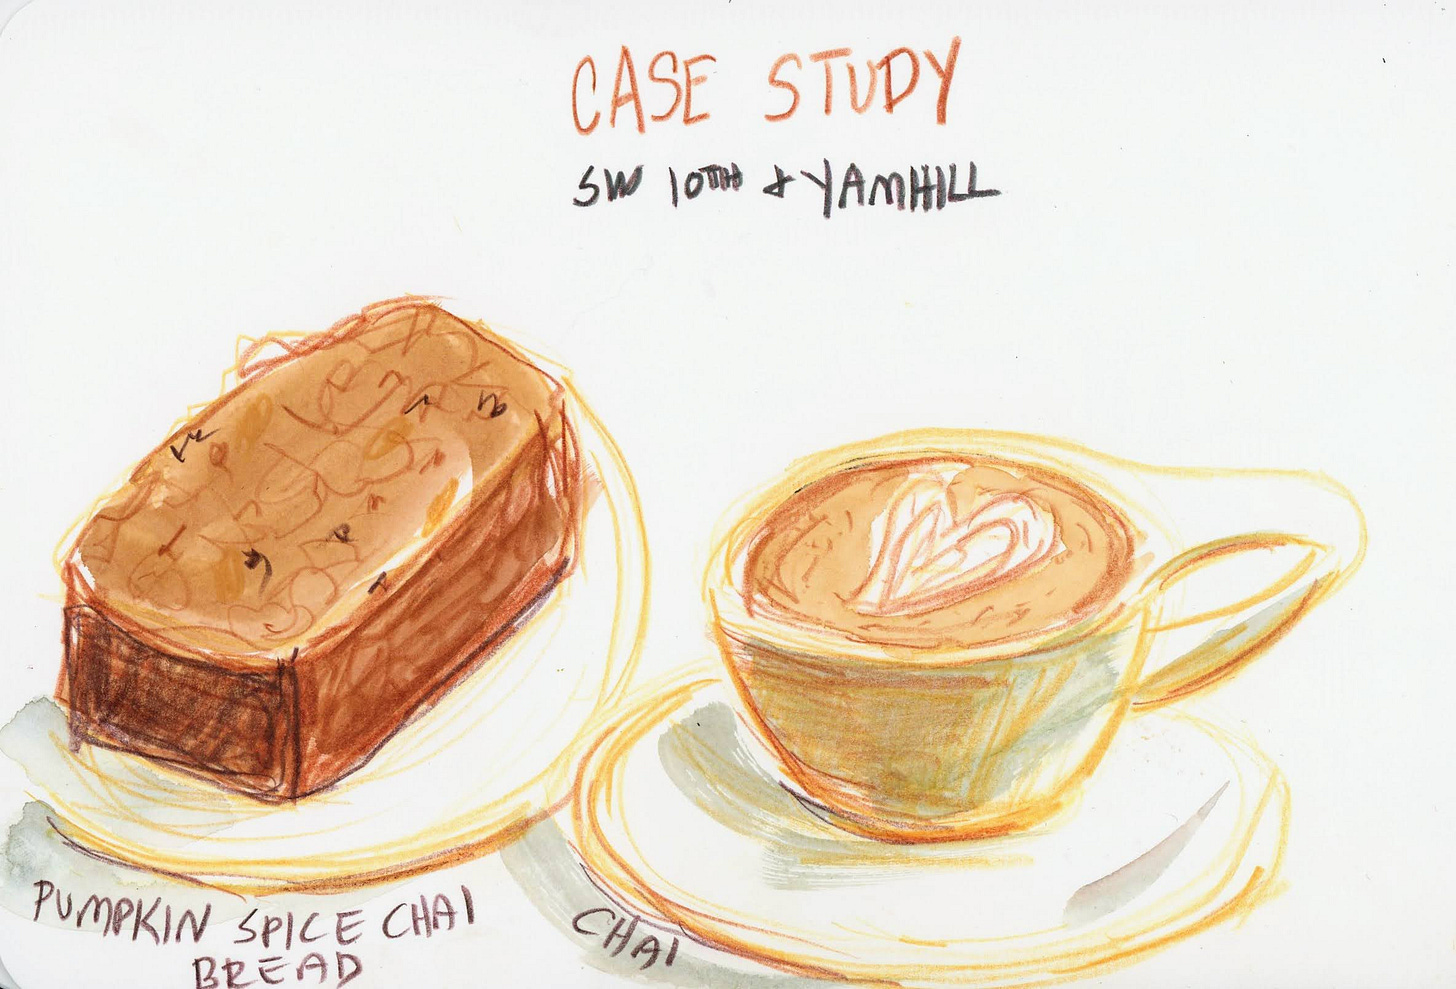 CASE STUDY
SW 10TH & YAMHILL
PUMPKIN SPICE CHAI
BREAD
CHAI